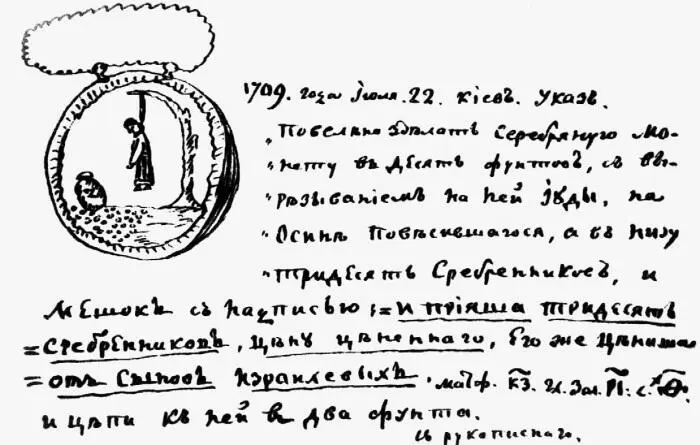 1709. года Іюля. 22. Кіевъ. Указ.
„Повелено здѣлать Серебряную мо-
„нету въ десять фунтовъ, съ вы-
„рѣзываніемъ на ней Іуды, на
„Осинѣ повѣсившагося, а въ низу
„тридесять Сребренниковъ, и
мешокъ съ надписью := и пріяша тридесять
= сребренниковъ, цѣну цѣненнаго, Его же цѣниша
= отъ Сыновъ Израилевыхъ. матф. к͠з.
и цѣпи къ ней въ два фунта.
съ рукописнаго.